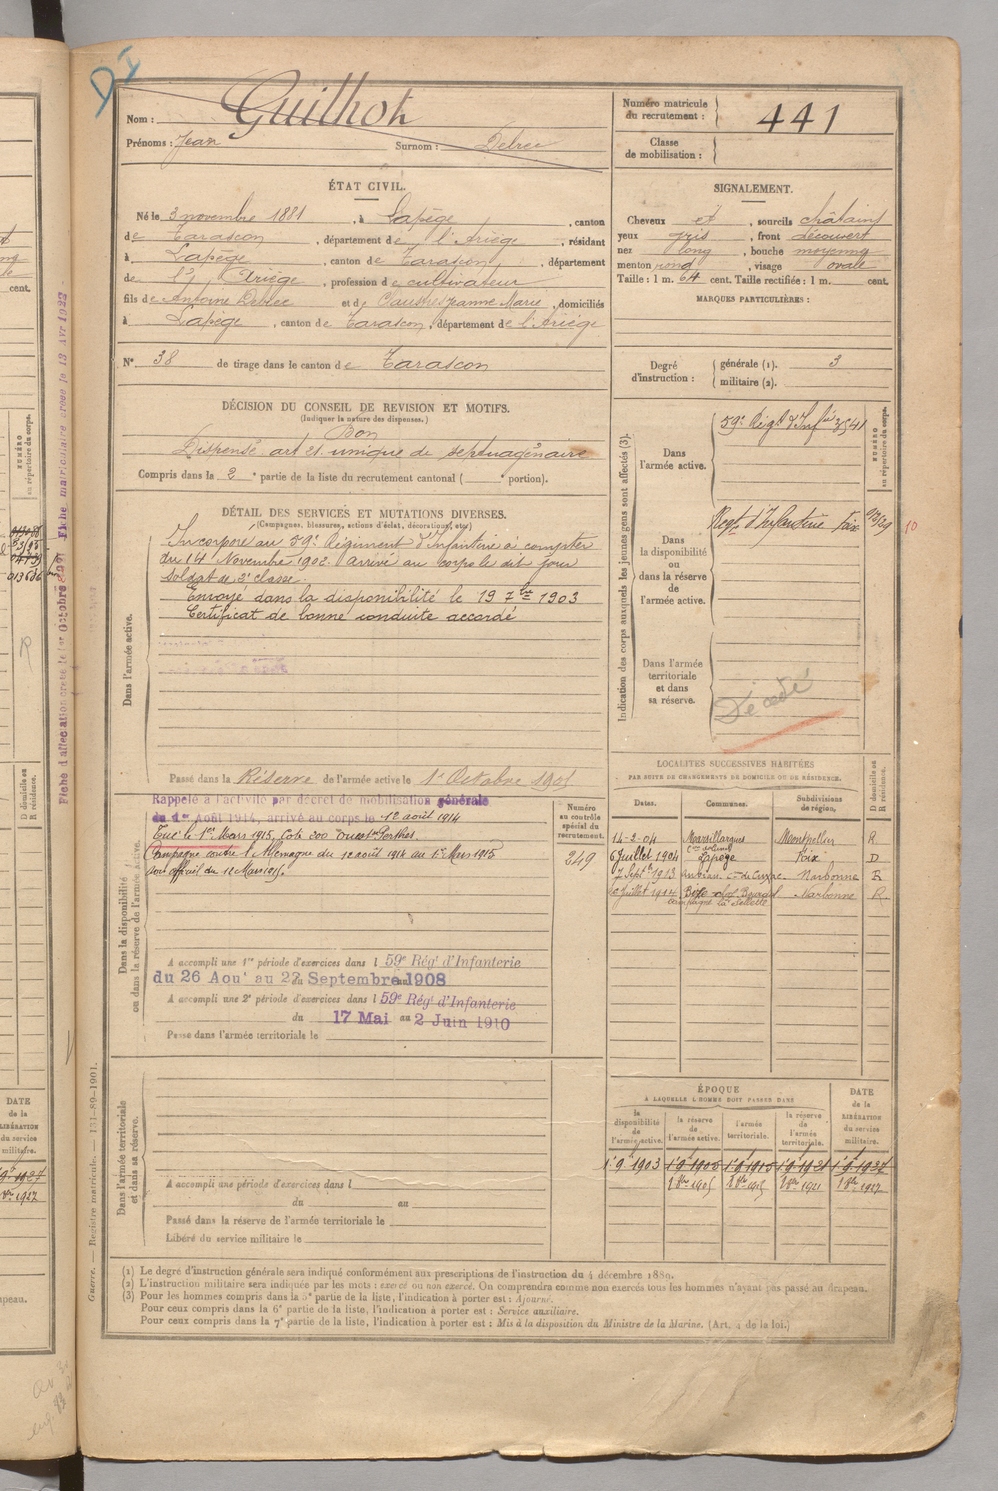 DI
Nom : Guilhot
Prénoms : Jean Surnom : Delrec
Numéro matricule du recrutement : 441
Classe de mobilisation :
ÉTAT CIVIL.
Né le 3 novembre 1881, à Lapège, canton
de Tarascon, département de l'Ariège, résidant
à Lapège, canton de Tarascon, département
de l'Ariège, profession de cultivateur
fils de Antoine Delrec et de Jeanne Marie, domiciliés
à Lapège, canton de Tarascon, département de l'Ariège
N° 38 de tirage dans le canton de Tarascon
SIGNALEMENT.
Cheveux et, sourcils châtains
yeux gris, front découvert
nez long, bouche moyenne
menton rond, visage ovale
Taille : 1 m. 64 cent. Taille rectifiée : 1 m. cent.
MARQUES PARTICULIÈRES :
Degré d'instruction : générale (1). 3
militaire (2).
DÉCISION DU CONSEIL DE REVISION ET MOTIFS.
(Indiquer la nature des dispenses.)
Bon
Dispensé art 21. unique de septuagénaire
Compris dans la 2e partie de la liste du recrutement cantonal ( e portion).
DÉTAIL DES SERVICES ET MUTATIONS DIVERSES.
(Campagnes, blessures, actions d'éclat, décorations, etc.)
Dans l'armée active.
Incorporé au 59e Régiment d'Infanterie à compter
du 14 Novembre 1902. arrivé au corps le dit jour
soldat de 2e classe.
Envoyé dans la disponibilité le 19 7bre 1903
Certificat de bonne conduite accordé
Passé dans la Réserve de l'armée active le 1er Octobre 1905
Indication des corps auxquels les jeunes gens sont affectés (3).
NUMÉRO au répertoire du corps.
Dans l'armée active.
59e Régt d'Infie 3541
Dans la disponibilité ou dans la réserve de l'armée active.
Regt d'Infanterie Foix
10
Dans l'armée territoriale et dans sa réserve.
Décédé
Dans la disponibilité ou dans la réserve de l'armée active.
Rappelé à l'activité par décret de mobilisation générale
du 1er Août 1914, arrivé au corps le 12 août 1914
Tué le 1er Mars 1915, Cote 200 Ouest Perthes
Campagne contre l'Allemagne du 12 août 1914 au 1er Mars 1915
Avis officiel du 12 Mars 1915.
Numéro au contrôle spécial du recrutement.
249
A accompli une 1re période d'exercices dans l 59e Régt d'Infanterie
du 26 Aout au 22 Septembre 1908
A accompli une 2e période d'exercices dans l 59e Régt d'Infanterie
du 17 Mai au 2 Juin 1910
Passé dans l'armée territoriale le
LOCALITÉS SUCCESSIVES HABITÉES
PAR SUITE DE CHANGEMENTS DE DOMICILE OU DE RÉSIDENCE.
Dates. Communes. Subdivisions de région. D domicile ou R résidence.
14-2-04 Marsillargues Montpellier R
6 Juillet 1904 Lapège Foix D
7 Septbre 1913 Narbonne R
Narbonne R
Dans l'armée territoriale et dans sa réserve.
A accompli une période d'exercices dans l
du au
Passé dans la réserve de l'armée territoriale le
Libéré du service militaire le
ÉPOQUE
À LAQUELLE L'HOMME DOIT PASSER DANS
la disponibilité de l'armée active. la réserve de l'armée active. l'armée territoriale. la réserve de l'armée territoriale. DATE de la LIBÉRATION du service militaire.
1er 9 1903 1er 9 1905 1er 9 1915 1er 9 1921 1er 9 1927
(1) Le degré d'instruction générale sera indiqué conformément aux prescriptions de l'instruction du 4 décembre 1889.
(2) L'instruction militaire sera indiquée par les mots : exercé ou non exercé. On comprendra comme non exercés tous les hommes n'ayant pas passé au drapeau.
(3) Pour les hommes compris dans la 5e partie de la liste, l'indication à porter est : Ajourné.
Pour ceux compris dans la 6e partie de la liste, l'indication à porter est : Service auxiliaire.
Pour ceux compris dans la 7e partie de la liste, l'indication à porter est : Mis à la disposition du Ministre de la Marine. (Art. 4 de la loi.)
Guerre. — Registre matricule. — 131-89-1901.